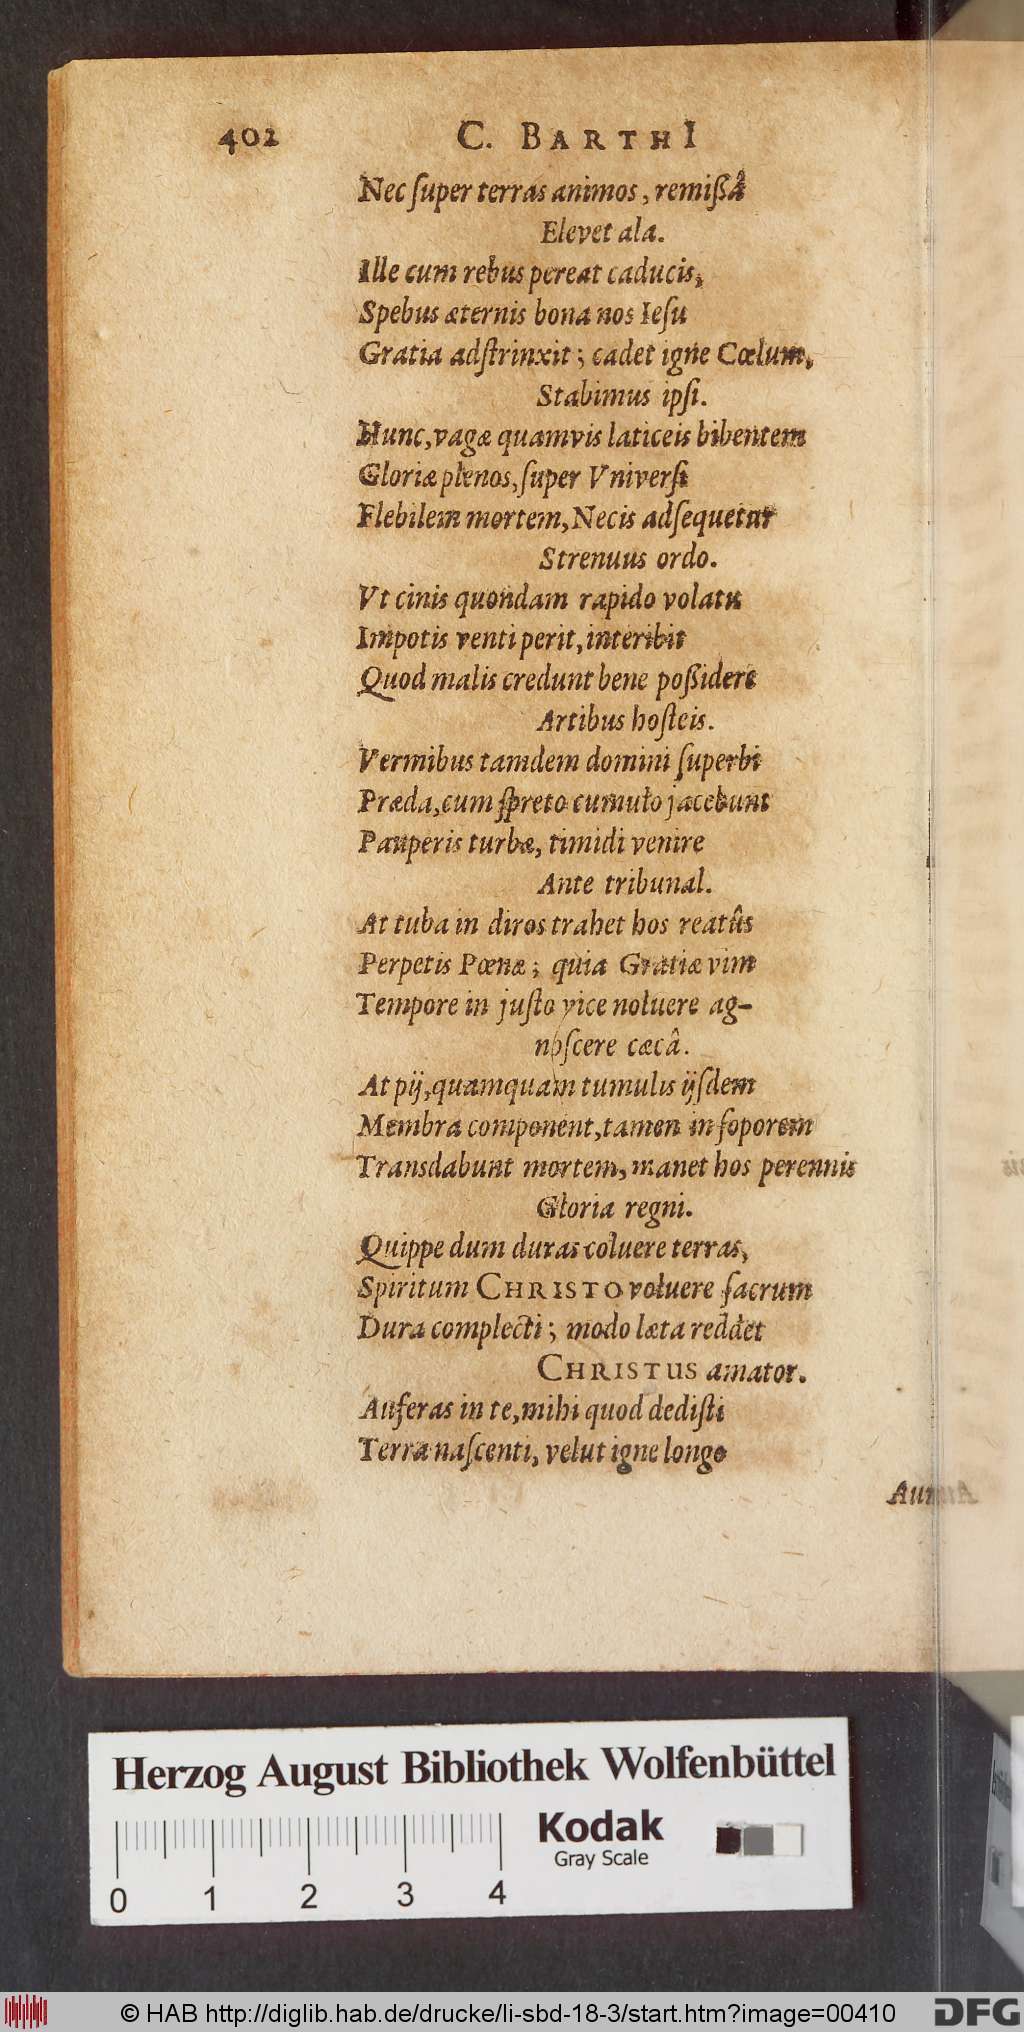 402 C. BARTHI
Nec ſuper terras animos, remißâ
Elevet ala.
Ille cum rebus pereat caducis,
Spebus æternis bona nos Ieſu
Gratia adſtrinxit; cadet igne Cœlum,
Stabimus ipſi.
Hunc, vagæ quamvis laticeis bibentem
Gloriæ plenos, ſuper Vniverſi
Flebilem mortem, Necis adſequetur
Strenuus ordo.
Vt cinis quondam rapido volatu
Impotis venti perit, interibit
Quod malis credunt bene poßidere
Artibus hoſteis.
Vermibus tamdem domini ſuperbi
Præda, cum ſpreto cumulo jacebunt
Pauperis turbæ, timidi venire
Ante tribunal.
At tuba in diros trahet hos reatûs
Perpetis Pœnæ; quia Gratiæ vim
Tempore in juſto vice noluere ag-
noſcere cæcâ.
At pij, quamquam tumulis ijſdem
Membra component, tamen in ſoporem
Transdabunt mortem, manet hos perennis
Gloria regni.
Quippe dum duras coluere terras,
Spiritum CHRISTO voluere ſacrum
Dura complecti; modo læta reddet
CHRISTUS amator.
Auferas in te, mihi quod dediſti
Terra naſcenti, velut igne longo
Herzog August Bibliothek Wolfenbüttel
Kodak
Gray Scale
0 1 2 3 4
© HAB http://diglib.hab.de/drucke/li-sbd-18-3/start.htm?image=00410 DFG